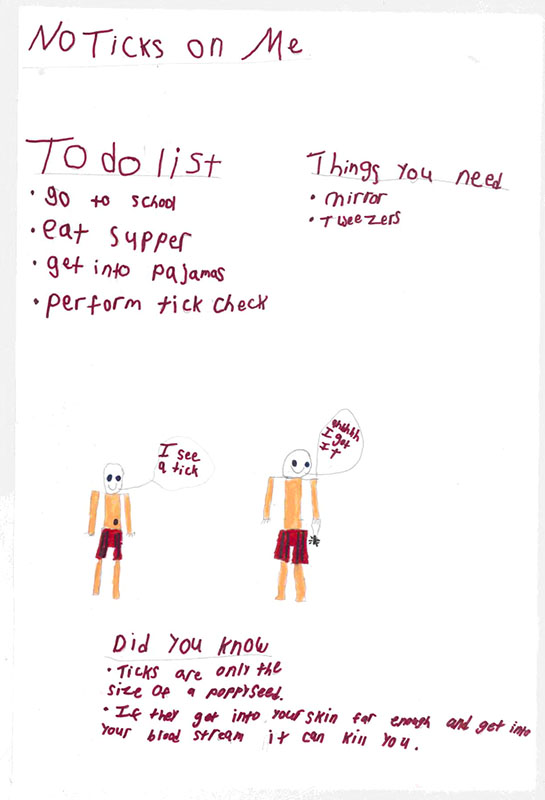 NO TICKS on Me
TO do list
• go to school
• eat supper
• get into pajamas
• perform tick check
Things you need
• mirror
• Tweezers
I see
a tick
ahhhhh
I got
IT
Did you know
• Ticks are only the
size of a poppyseed.
• If they got into your skin far enough and get into
your blood stream it can kill you.